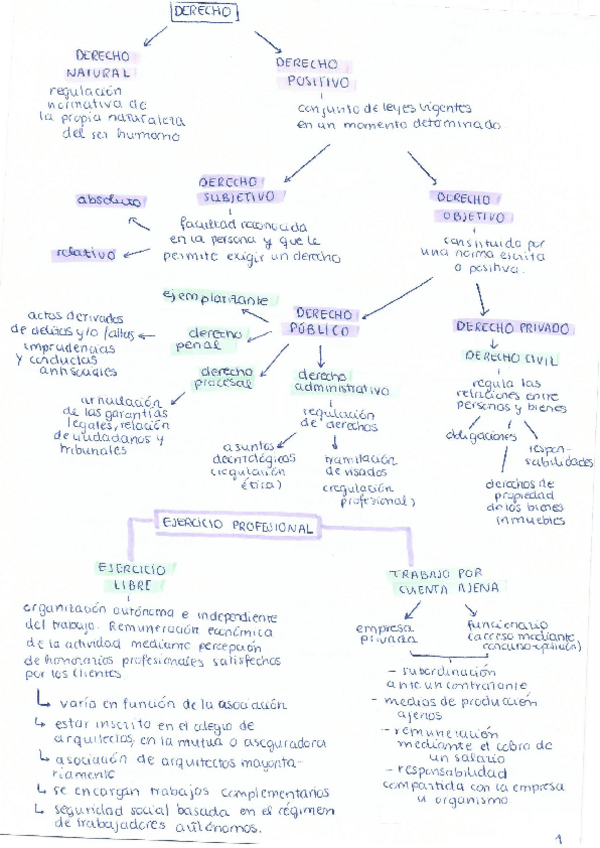 DERECHO
DERECHO
NATURAL
regulación
normativa de
la propia naturaleza
del ser humano
DERECHO
POSITIVO
conjunto de leyes vigentes
en un momento determinado.
DERECHO
SUBJETIVO
facultad reconocida
en la persona y que le
permite exigir un derecho
absoluto
relativo
DERECHO
OBJETIVO
constituido por
una norma escrita
o positiva.
DERECHO
PÚBLICO
ejemplarizante
derecho
penal
actos derivados
de delitos y/o faltas
imprudencias
y conductas
antisociales
derecho
procesal
articulación
de las garantías
legales, relación
de ciudadanos y
tribunales
derecho
administrativo
regulación
de derechos
asuntos
deontológicos
(regulación
ética)
tramitación
de visados
(regulación
profesional)
DERECHO PRIVADO
DERECHO CIVIL
regula las
relaciones entre
personas y bienes
obligaciones
respon-
sabilidades
derechos de
propiedad
de los bienes
inmuebles
EJERCICIO PROFESIONAL
EJERCICIO
LIBRE
organización autónoma e independiente
del trabajo. Remuneración económica
de la actividad mediante percepción
de honorarios profesionales satisfechos
por los clientes
varía en función de la asociación
estar inscrito en el colegio de
arquitectos, en la mutua o aseguradora
asociación de arquitectos mayorita-
riamente
se encargan trabajos complementarios
seguridad social basada en el régimen
de trabajadores autónomos.
TRABAJO POR
CUENTA AJENA
empresa
privada
funcionario
(acceso mediante
concurso-oposición)
- subordinación
ante un contratante
- medios de producción
ajenos
- remuneración
mediante el cobro de
un salario
- responsabilidad
compartida con la empresa
u organismo
1